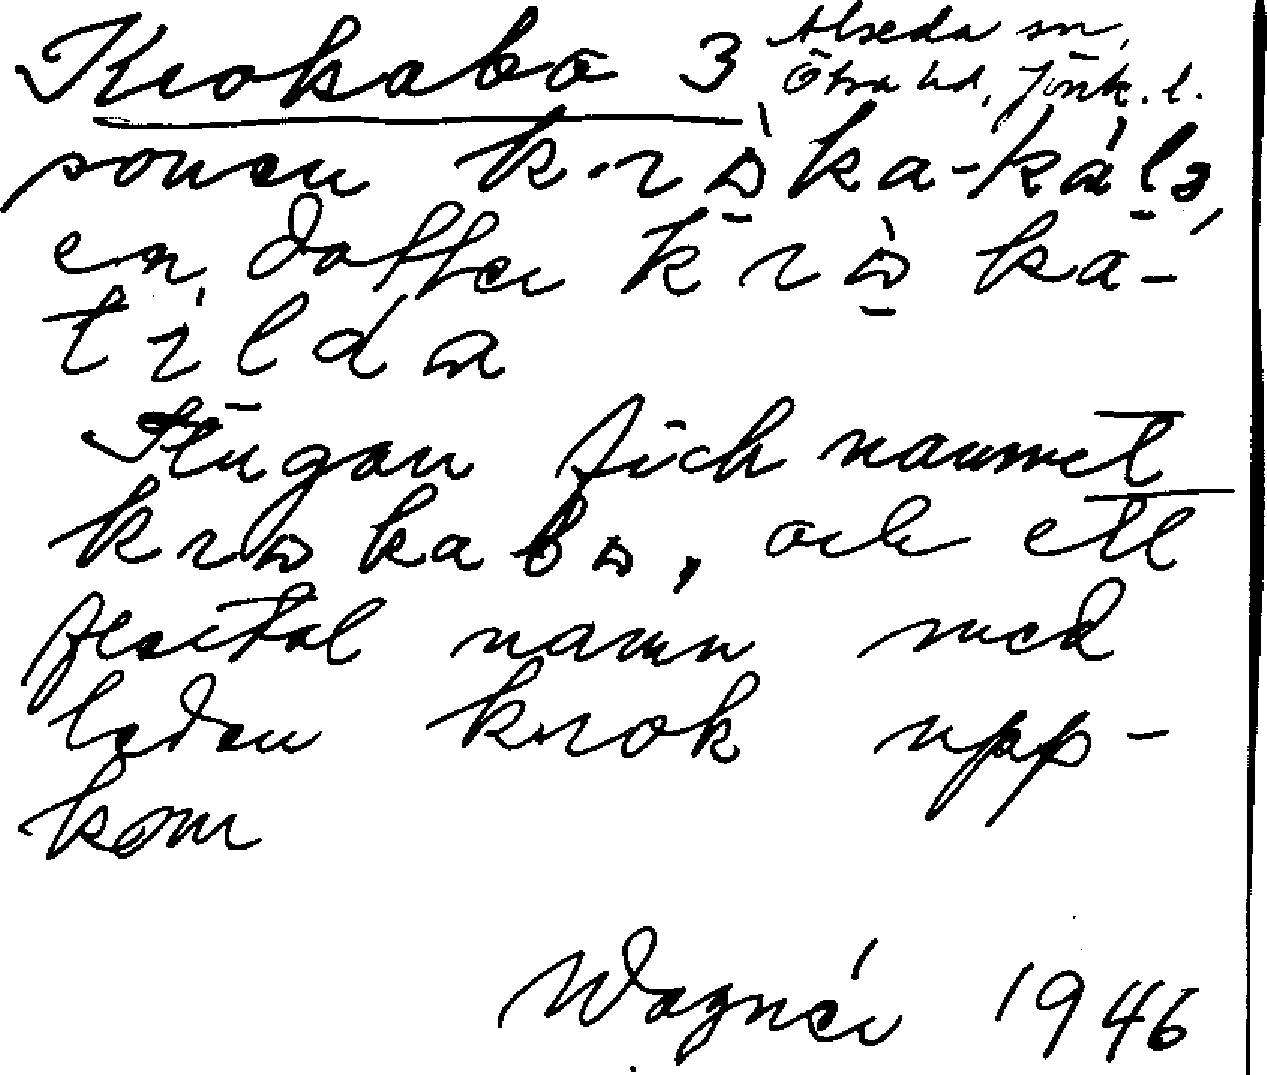 Krokabo 3 Alseda sn,
Östra hd, Jönk. l.
sonen krωka-kálɜ,
en dotter krὼ ka-
tilda
Stugan fick namnet
krωkabω, och ett
flertal namn med
leden krok upp-
kom
Wagnér 1946